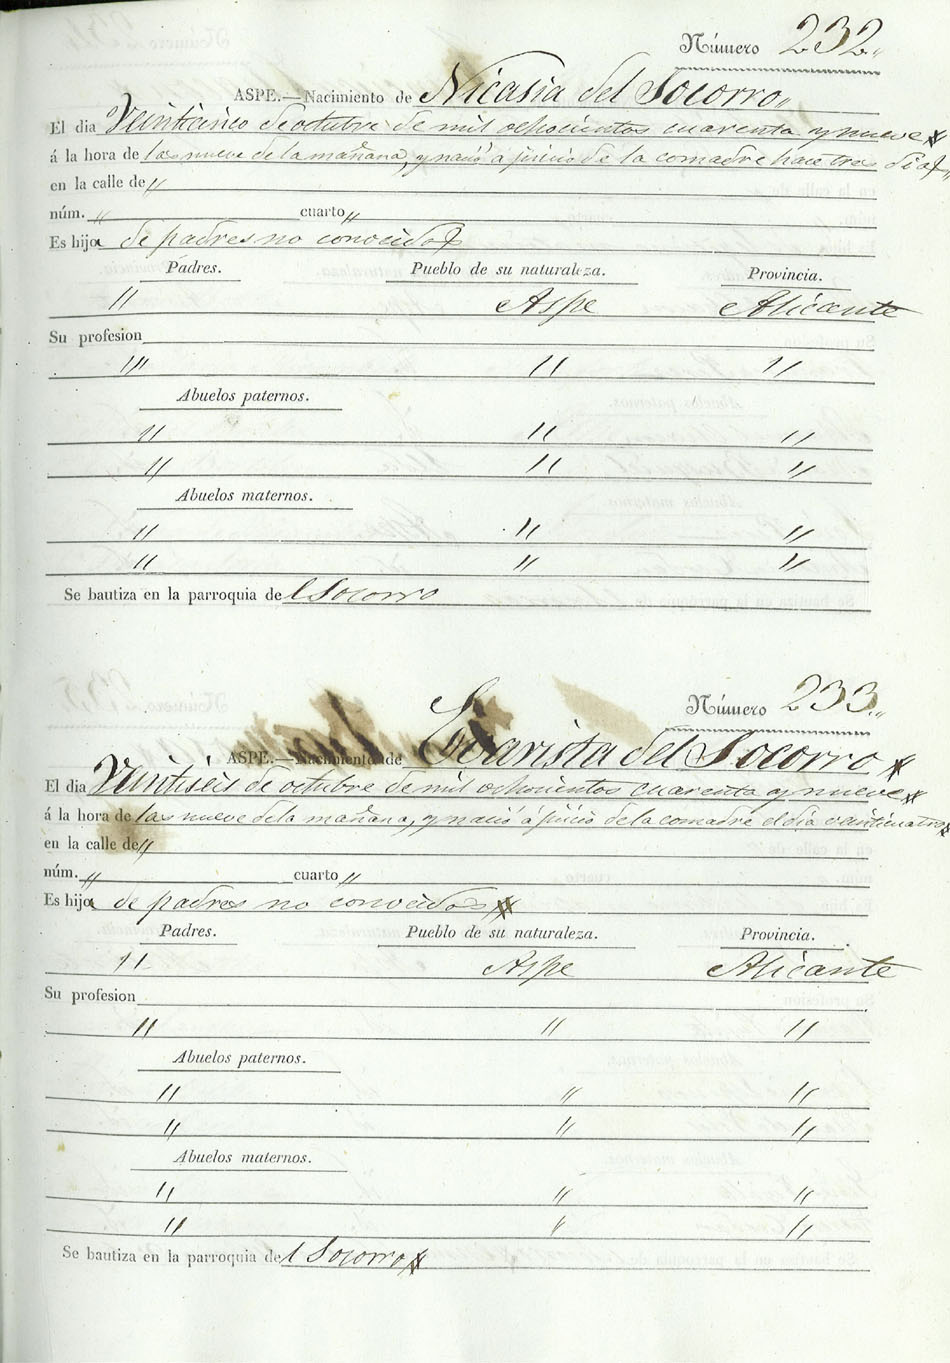 Número 232.,
ASPE.—Nacimiento de Nicasia del Socorro,,
El dia Veinticinco de octubre de mil ochocientos cuarenta y nueve
á la hora de las nueve de la mañana, y nació a juicio de la comadre hace tres dias,,
en la calle de ,,
núm. ,, cuarto ,,
Es hija de padres no conocidos
Padres. Pueblo de su naturaleza. Provincia.
,, Aspe Alicante
Su profesion
,,, ,, ,,
Abuelos paternos.
,, ,, ,,
,, ,, ,,
Abuelos maternos.
,, ,, ,,
,, ,, ,,
Se bautiza en la parroquia de l Socorro
Número 233.,
ASPE.—Nacimiento de Evarista del Socorro
El dia Veintiseis de octubre de mil ochocientos cuarenta y nueve
á la hora de las nueve de la mañana, y nació á juicio de la comadre el dia veinticuatro
en la calle de ,,
núm. ,, cuarto ,,
Es hija de padres no conocidos
Padres. Pueblo de su naturaleza. Provincia.
,, Aspe Alicante
Su profesion
,, ,, ,,
Abuelos paternos.
,, ,, ,,
,, ,, ,,
Abuelos maternos.
,, ,, ,,
,, ,, ,,
Se bautiza en la parroquia de l Socorro